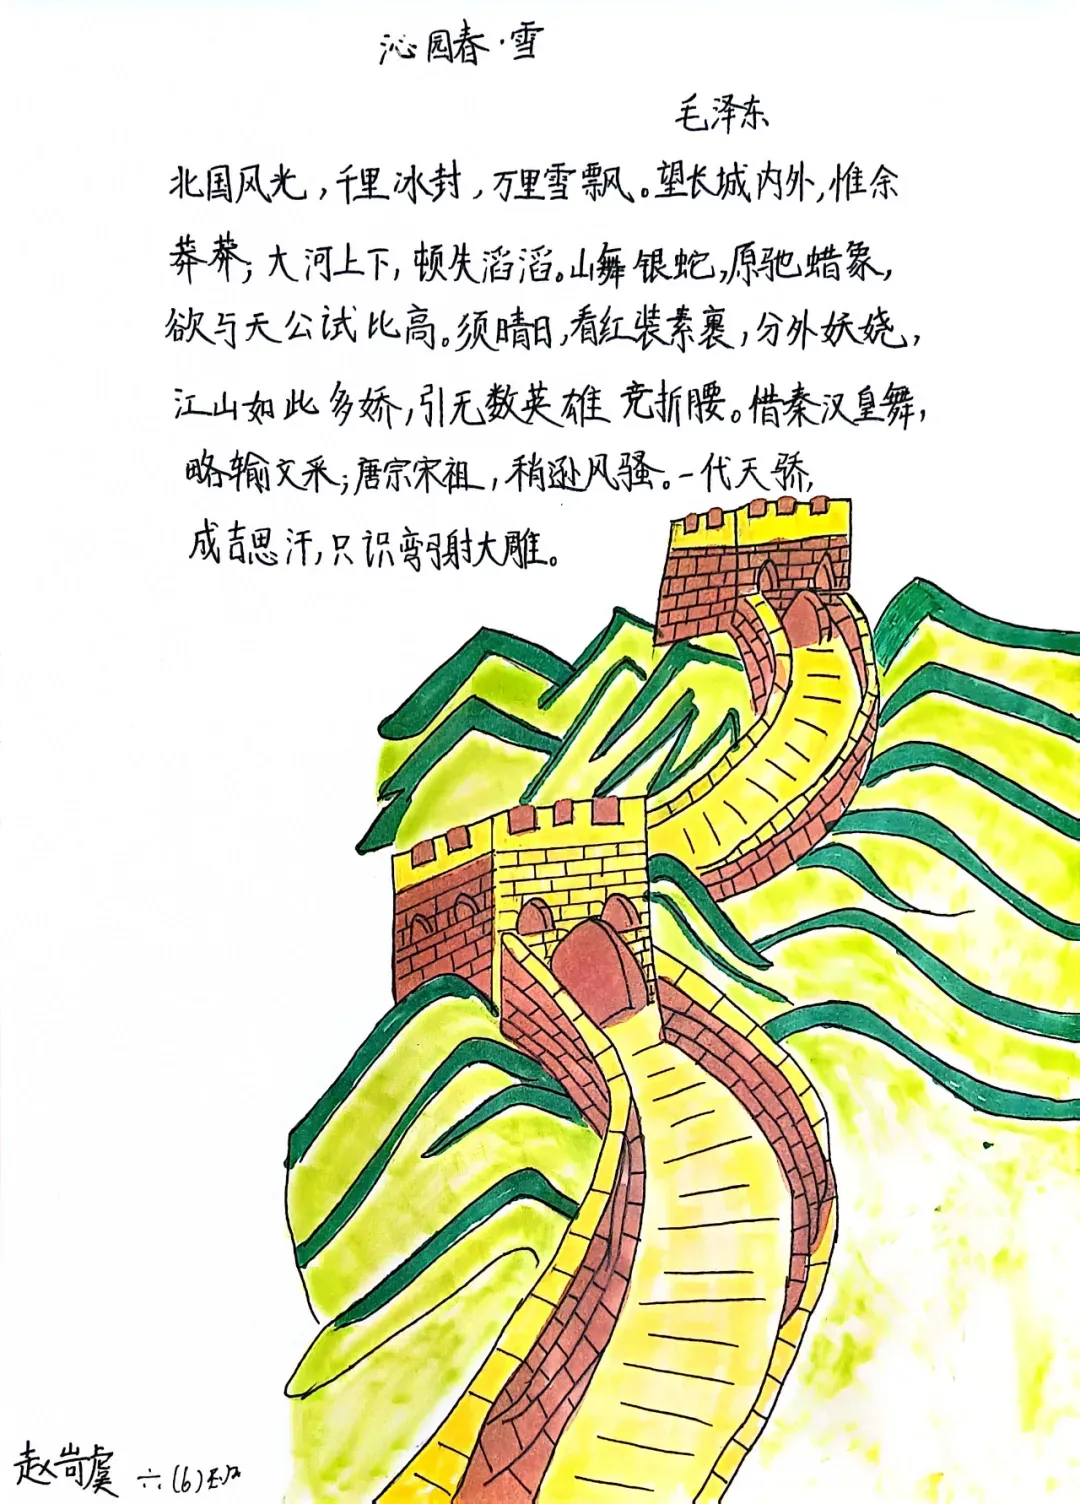 沁园春·雪
毛泽东
北国风光,千里冰封,万里雪飘。望长城内外,惟余
莽莽;大河上下,顿失滔滔。山舞银蛇,原驰蜡象,
欲与天公试比高。须晴日,看红装素裹,分外妖娆,
江山如此多娇,引无数英雄竞折腰。惜秦汉皇舞,
略输文采;唐宗宋祖,稍逊风骚。一代天骄,
成吉思汗,只识弯弓射大雕。
赵岢虞 六(6)班